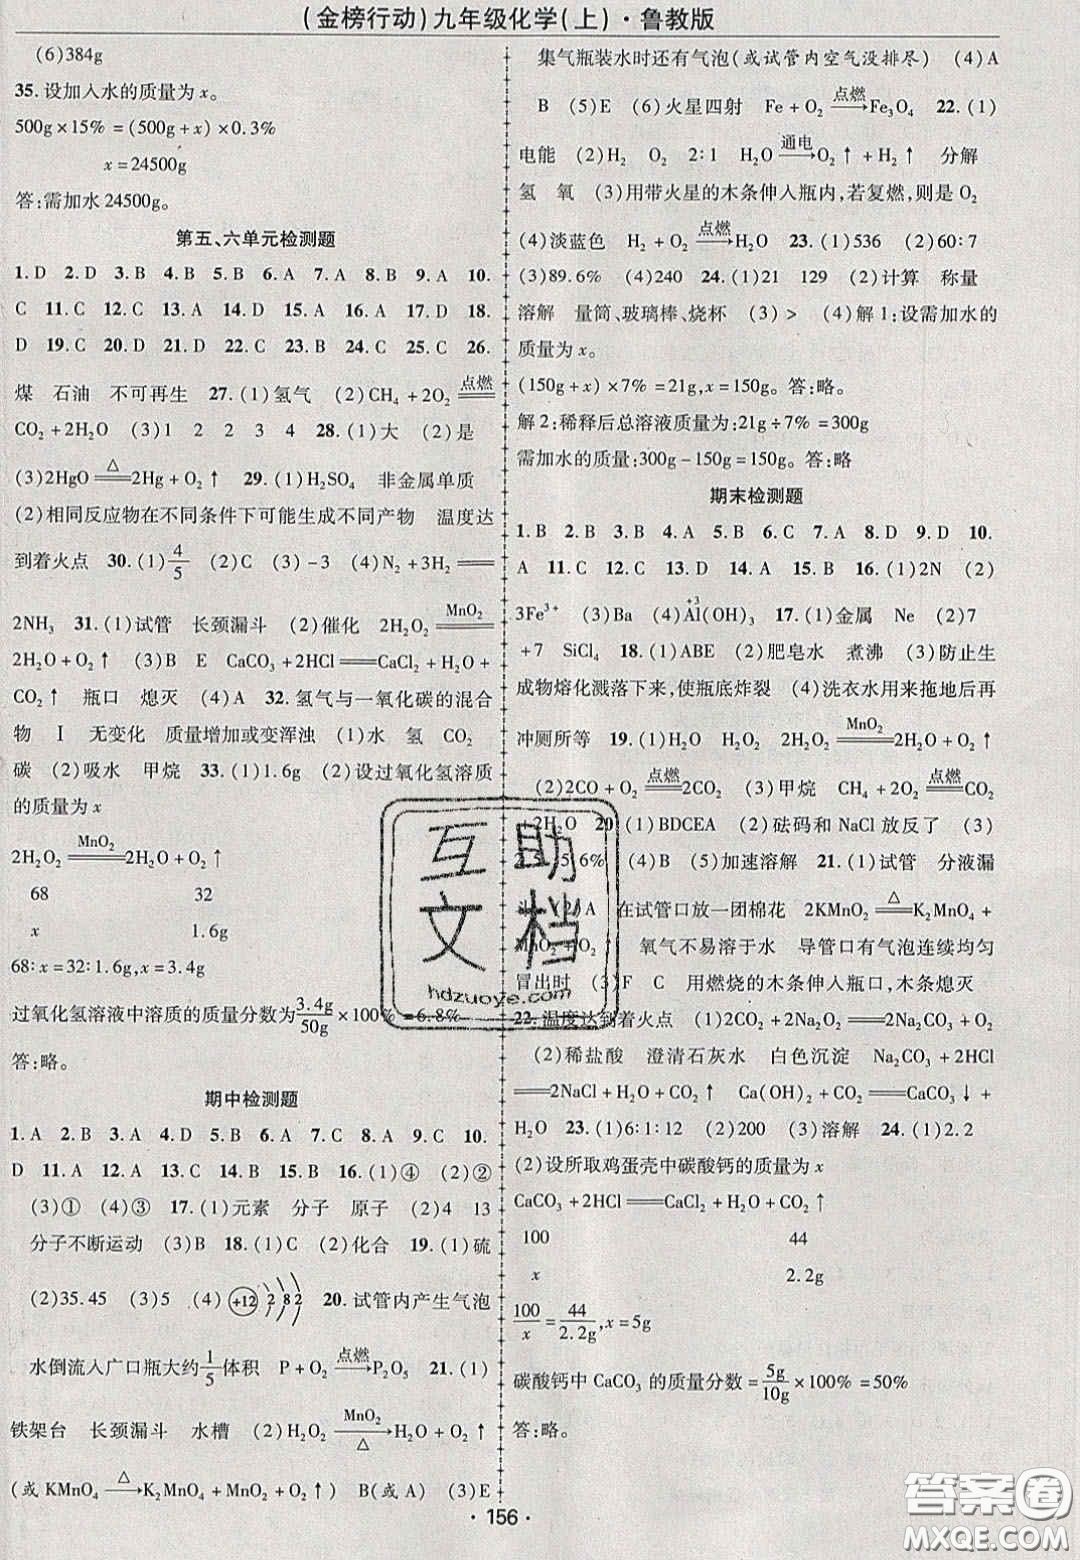 (金榜行动)九年级化学(上)·鲁教版
(6)384g
35.设加入水的质量为x。
500g×15%=(500g+x)×0.3%
x=24500g
答:需加水24500g。
第五、六单元检测题
1.D 2.D 3.B 4.B 5.B 6.A 7.A 8.B 9.A 10.
C 11.C 12.C 13.A 14.D 15.A 16.A 17.D 18.
D 19.C 20.D 21.D 22.C 23.B 24.C 25.C 26.
煤 石油 不可再生 27.(1)氢气 (2)CH₄+2O₂ 点燃══
CO₂+2H₂O (3)1 2 2 3 4 28.(1)大 (2)是
(3)2HgO △══ 2Hg+O₂↑ 29.(1)H₂SO₄ 非金属单质
(2)相同反应物在不同条件下可能生成不同产物 温度达
到着火点 30.(1)4/5 (2)C (3)-3 (4)N₂+3H₂══
2NH₃ 31.(1)试管 长颈漏斗 (2)催化 2H₂O₂ MnO₂══
2H₂O+O₂↑ (3)B E CaCO₃+2HCl══CaCl₂+H₂O+
CO₂↑ 瓶口 熄灭 (4)A 32.氢气与一氧化碳的混合
物 Ⅰ 无变化 质量增加或变浑浊 (1)水 氢 CO₂
碳 (2)吸水 甲烷 33.(1)1.6g (2)设过氧化氢溶质
的质量为x
2H₂O₂ MnO₂══ 2H₂O+O₂↑
68 32
x 1.6g
68:x=32:1.6g,x=3.4g
过氧化氢溶液中溶质的质量分数为3.4g/50g×100%=6.8%
答:略。
期中检测题
1.A 2.B 3.A 4.D 5.B 6.A 7.C 8.A 9.C 10.
D 11.A 12.A 13.C 14.B 15.B 16.(1)④ (2)②
(3)① (4)③ 17.(1)元素 分子 原子 (2)4 13
分子不断运动 (3)B 18.(1)C (2)化合 19.(1)硫
(2)35.45 (3)5 (4) +12 2 8 2 20.试管内产生气泡
水倒流入广口瓶大约1/5体积 P+O₂ 点燃→ P₂O₅ 21.(1)
铁架台 长颈漏斗 水槽 (2)H₂O₂ MnO₂→△ H₂O+O₂↑
(或 KMnO₄ △→ K₂MnO₄+MnO₂+O₂↑) B(或A) (3)E
集气瓶装水时还有气泡(或试管内空气没排尽) (4)A
B (5)E (6)火星四射 Fe+O₂ 点燃→ Fe₃O₄ 22.(1)
电能 (2)H₂ O₂ 2:1 H₂O 通电→ O₂↑+H₂↑ 分解
氢 氧 (3)用带火星的木条伸入瓶内,若复燃,则是O₂
(4)淡蓝色 H₂+O₂ 点燃→ H₂O 23.(1)536 (2)60:7
(3)89.6% (4)240 24.(1)21 129 (2)计算 称量
溶解 量筒、玻璃棒、烧杯 (3)> (4)解1:设需加水的
质量为x。
(150g+x)×7%=21g,x=150g。答:略。
解2:稀释后总溶液质量为:21g÷7%=300g
需加水的质量:300g-150g=150g。答:略
期末检测题
1.B 2.B 3.B 4.A 5.B 6.C 7.A 8.D 9.D 10.
A 11.C 12.C 13.D 14.A 15.B 16.(1)2N (2)
3Fe³⁺ (3)Ba (4)Al(+3)(OH)₃ 17.(1)金属 Ne (2)7
+7 SiCl₄ 18.(1)ABE (2)肥皂水 煮沸 (3)防止生
成物熔化溅落下来,使瓶底炸裂 (4)洗衣水用来拖地后再
冲厕所等 19.(1)H₂O H₂O₂ 2H₂O₂ MnO₂══ 2H₂O+O₂↑
(2)2CO+O₂ 点燃══ 2CO₂ (3)甲烷 CH₄+2O₂ 点燃══ CO₂
+2H₂O 20.(1)BDCEA (2)砝码和NaCl放反了 (3)
5.6% (4)B (5)加速溶解 21.(1)试管 分液漏
斗 (2)A 在试管口放一团棉花 2KMnO₄ △══ K₂MnO₄+
MnO₂+O₂↑ 氧气不易溶于水 导管口有气泡连续均匀
冒出时 (3)F C 用燃烧的木条伸入瓶口,木条熄灭
22.温度达到着火点 (1)2CO₂+2Na₂O₂══2Na₂CO₃+O₂
(2)稀盐酸 澄清石灰水 白色沉淀 Na₂CO₃+2HCl
══2NaCl+H₂O+CO₂↑ Ca(OH)₂+CO₂══CaCO₃↓+
H₂O 23.(1)6:1:12 (2)200 (3)溶解 24.(1)2.2
(2)设所取鸡蛋壳中碳酸钙的质量为x
CaCO₃+2HCl══CaCl₂+H₂O+CO₂↑
100 44
x 2.2g
100/x=44/2.2g,x=5g
碳酸钙中CaCO₃的质量分数=5g/10g×100%=50%
答:略。
互助
文档
hdzuoye.com
·156·
答案圈
MXQE.COM